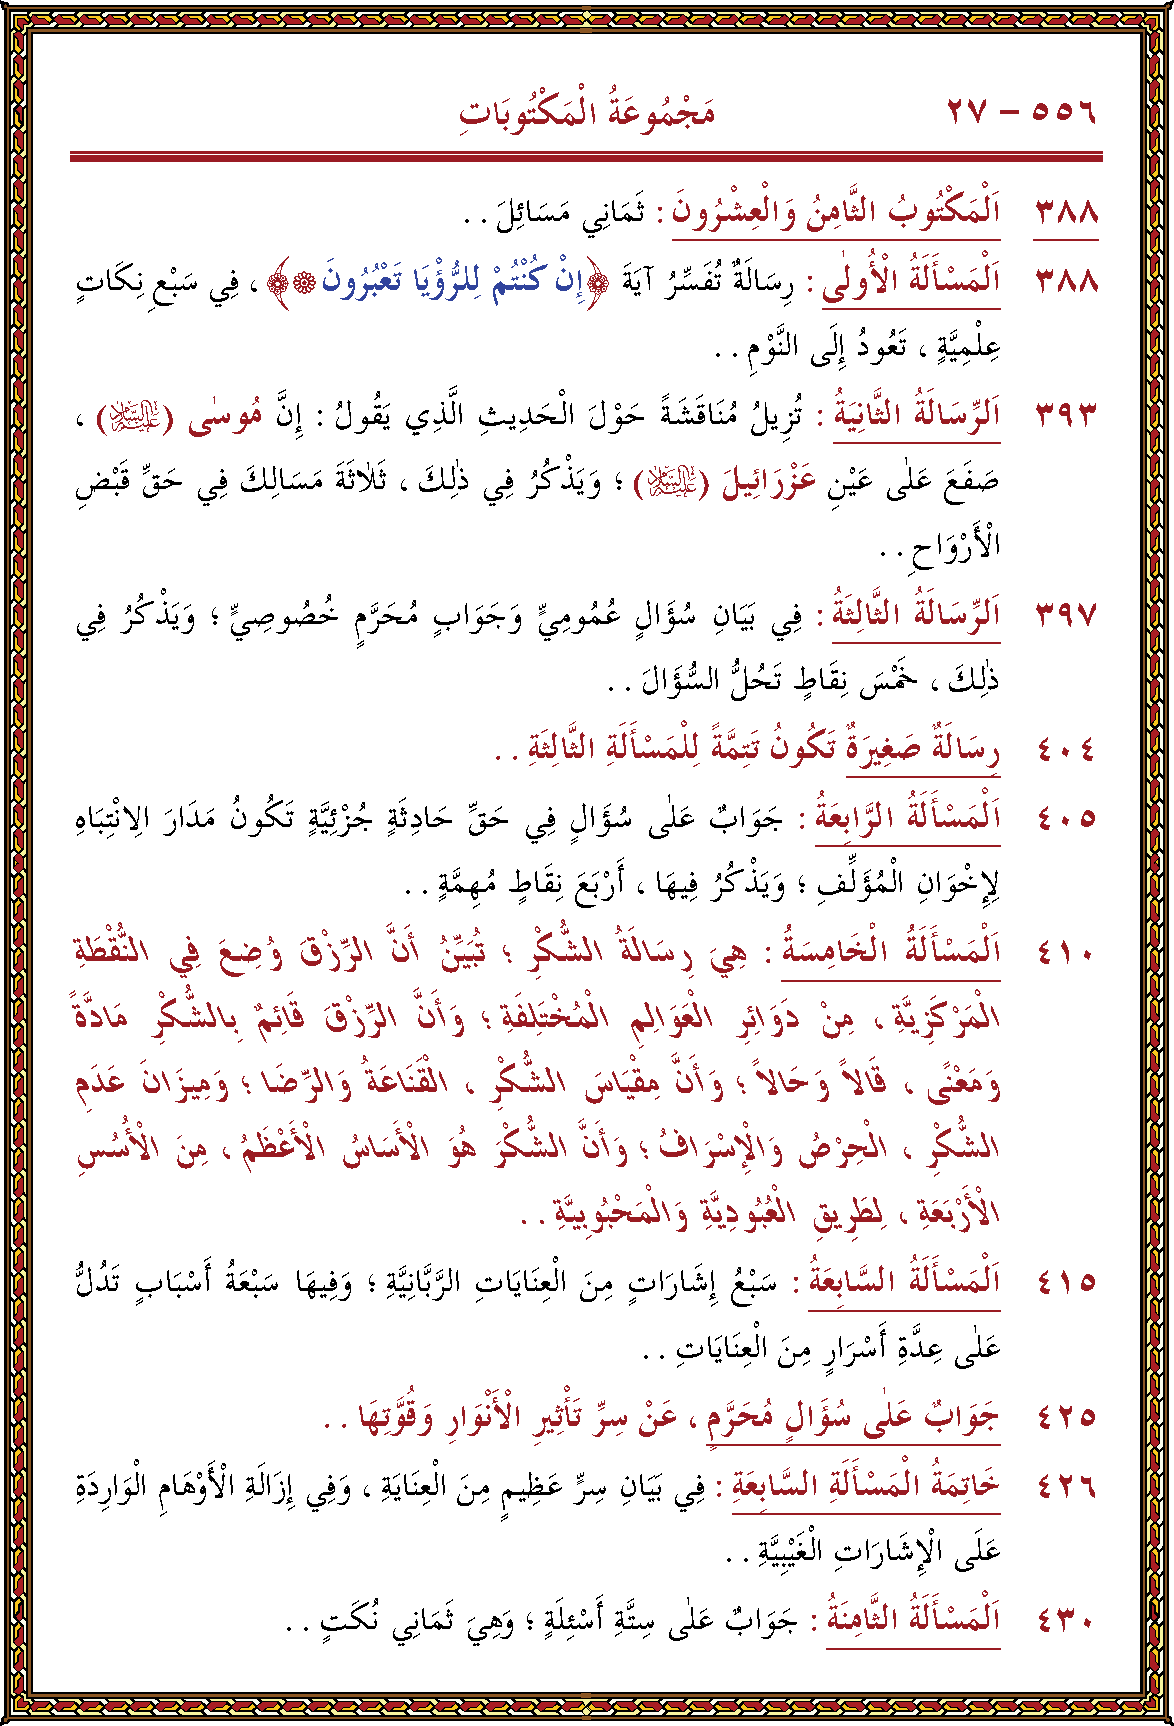 ٥٥٦ - ٢٧ مَجْمُوعَةُ الْمَكْتُوبَاتِ
٣٨٨ اَلْمَكْتُوبُ الثَّامِنُ وَالْعِشْرُونَ : ثَمَانِي مَسَائِلَ . .
٣٨٨ اَلْمَسْأَلَةُ الْأُولٰى : رِسَالَةٌ تُفَسِّرُ آيَةَ ﴿إِنْ كُنْتُمْ لِلرُّؤْيَا تَعْبُرُونَ۞﴾ ، فِي سَبْعِ نِكَاتٍ
عِلْمِيَّةٍ ، تَعُودُ إِلَى النَّوْمِ . .
٣٩٣ اَلرِّسَالَةُ الثَّانِيَةُ : تُزِيلُ مُنَاقَشَةً حَوْلَ الْحَدِيثِ الَّذِي يَقُولُ : إِنَّ مُوسٰى (عَلَيْهِ السَّلَامُ) ،
صَفَعَ عَلٰى عَيْنِ عَزْرَائِيلَ (عَلَيْهِ السَّلَامُ) ؛ وَيَذْكُرُ فِي ذٰلِكَ ، ثَلَاثَةَ مَسَالِكَ فِي حَقِّ قَبْضِ
الْأَرْوَاحِ . .
٣٩٧ اَلرِّسَالَةُ الثَّالِثَةُ : فِي بَيَانِ سُؤَالٍ عُمُومِيٍّ وَجَوَابٍ مُحَرَّمٍ خُصُوصِيٍّ ؛ وَيَذْكُرُ فِي
ذٰلِكَ ، خَمْسَ نِقَاطٍ تَحُلُّ السُّؤَالَ . .
٤٠٤ رِسَالَةٌ صَغِيرَةٌ تَكُونُ تَتِمَّةً لِلْمَسْأَلَةِ الثَّالِثَةِ . .
٤٠٥ اَلْمَسْأَلَةُ الرَّابِعَةُ : جَوَابٌ عَلٰى سُؤَالٍ فِي حَقِّ حَادِثَةٍ جُزْئِيَّةٍ تَكُونُ مَدَارَ الِانْتِبَاهِ
لِإِخْوَانِ الْمُؤَلِّفِ ؛ وَيَذْكُرُ فِيهَا ، أَرْبَعَ نِقَاطٍ مُهِمَّةٍ . .
٤١٠ اَلْمَسْأَلَةُ الْخَامِسَةُ : هِيَ رِسَالَةُ الشُّكْرِ ؛ تُبَيِّنُ أَنَّ الرِّزْقَ وُضِعَ فِي النُّقْطَةِ
الْمَرْكَزِيَّةِ ، مِنْ دَوَائِرِ الْعَوَالِمِ الْمُخْتَلِفَةِ ؛ وَأَنَّ الرِّزْقَ قَائِمٌ بِالشُّكْرِ مَادَّةً
وَمَعْنًى ، قَالاً وَحَالاً ؛ وَأَنَّ مِقْيَاسَ الشُّكْرِ ، الْقَنَاعَةُ وَالرِّضَا ؛ وَمِيزَانَ عَدَمِ
الشُّكْرِ ، الْحِرْصُ وَالْإِسْرَافُ ؛ وَأَنَّ الشُّكْرَ هُوَ الْأَسَاسُ الْأَعْظَمُ ، مِنَ الْأُسُسِ
الْأَرْبَعَةِ ، لِطَرِيقِ الْعُبُودِيَّةِ وَالْمَحْبُوبِيَّةِ . .
٤١٥ اَلْمَسْأَلَةُ السَّابِعَةُ : سَبْعُ إِشَارَاتٍ مِنَ الْعِنَايَاتِ الرَّبَّانِيَّةِ ؛ وَفِيهَا سَبْعَةُ أَسْبَابٍ تَدُلُّ
عَلٰى عِدَّةِ أَسْرَارٍ مِنَ الْعِنَايَاتِ . .
٤٢٥ جَوَابٌ عَلٰى سُؤَالٍ مُحَرَّمٍ ، عَنْ سِرِّ تَأْثِيرِ الْأَنْوَارِ وَقُوَّتِهَا . .
٤٢٦ خَاتِمَةُ الْمَسْأَلَةِ السَّابِعَةِ : فِي بَيَانِ سِرٍّ عَظِيمٍ مِنَ الْعِنَايَةِ ، وَفِي إِزَالَةِ الْأَوْهَامِ الْوَارِدَةِ
عَلَى الْإِشَارَاتِ الْغَيْبِيَّةِ . .
٤٣٠ اَلْمَسْأَلَةُ الثَّامِنَةُ : جَوَابٌ عَلٰى سِتَّةِ أَسْئِلَةٍ ؛ وَهِيَ ثَمَانِي نُكَتٍ . .